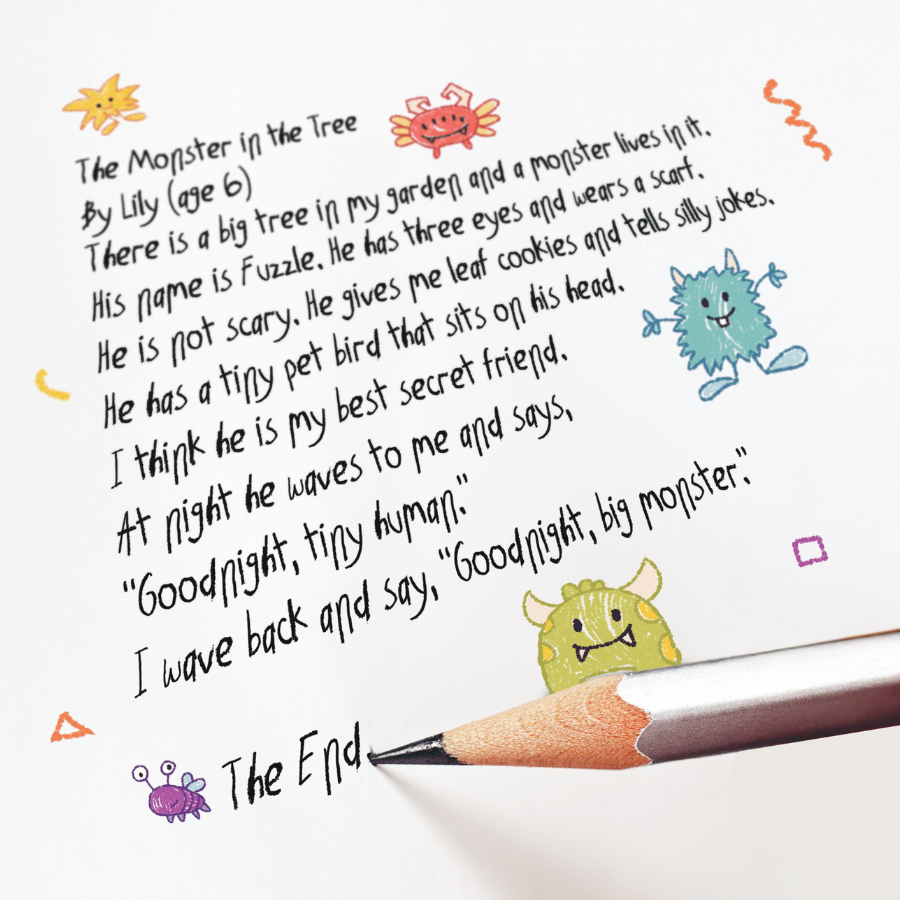 The Monster in the Tree
By Lily (age 6)
There is a big tree in my garden and a monster lives in it.
His name is Fuzzle. He has three eyes and wears a scarf.
He is not scary. He gives me leaf cookies and tells silly jokes.
He has a tiny pet bird that sits on his head.
I think he is my best secret friend.
At night he waves to me and says,
"Goodnight, tiny human."
I wave back and say, "Goodnight, big monster."
The End